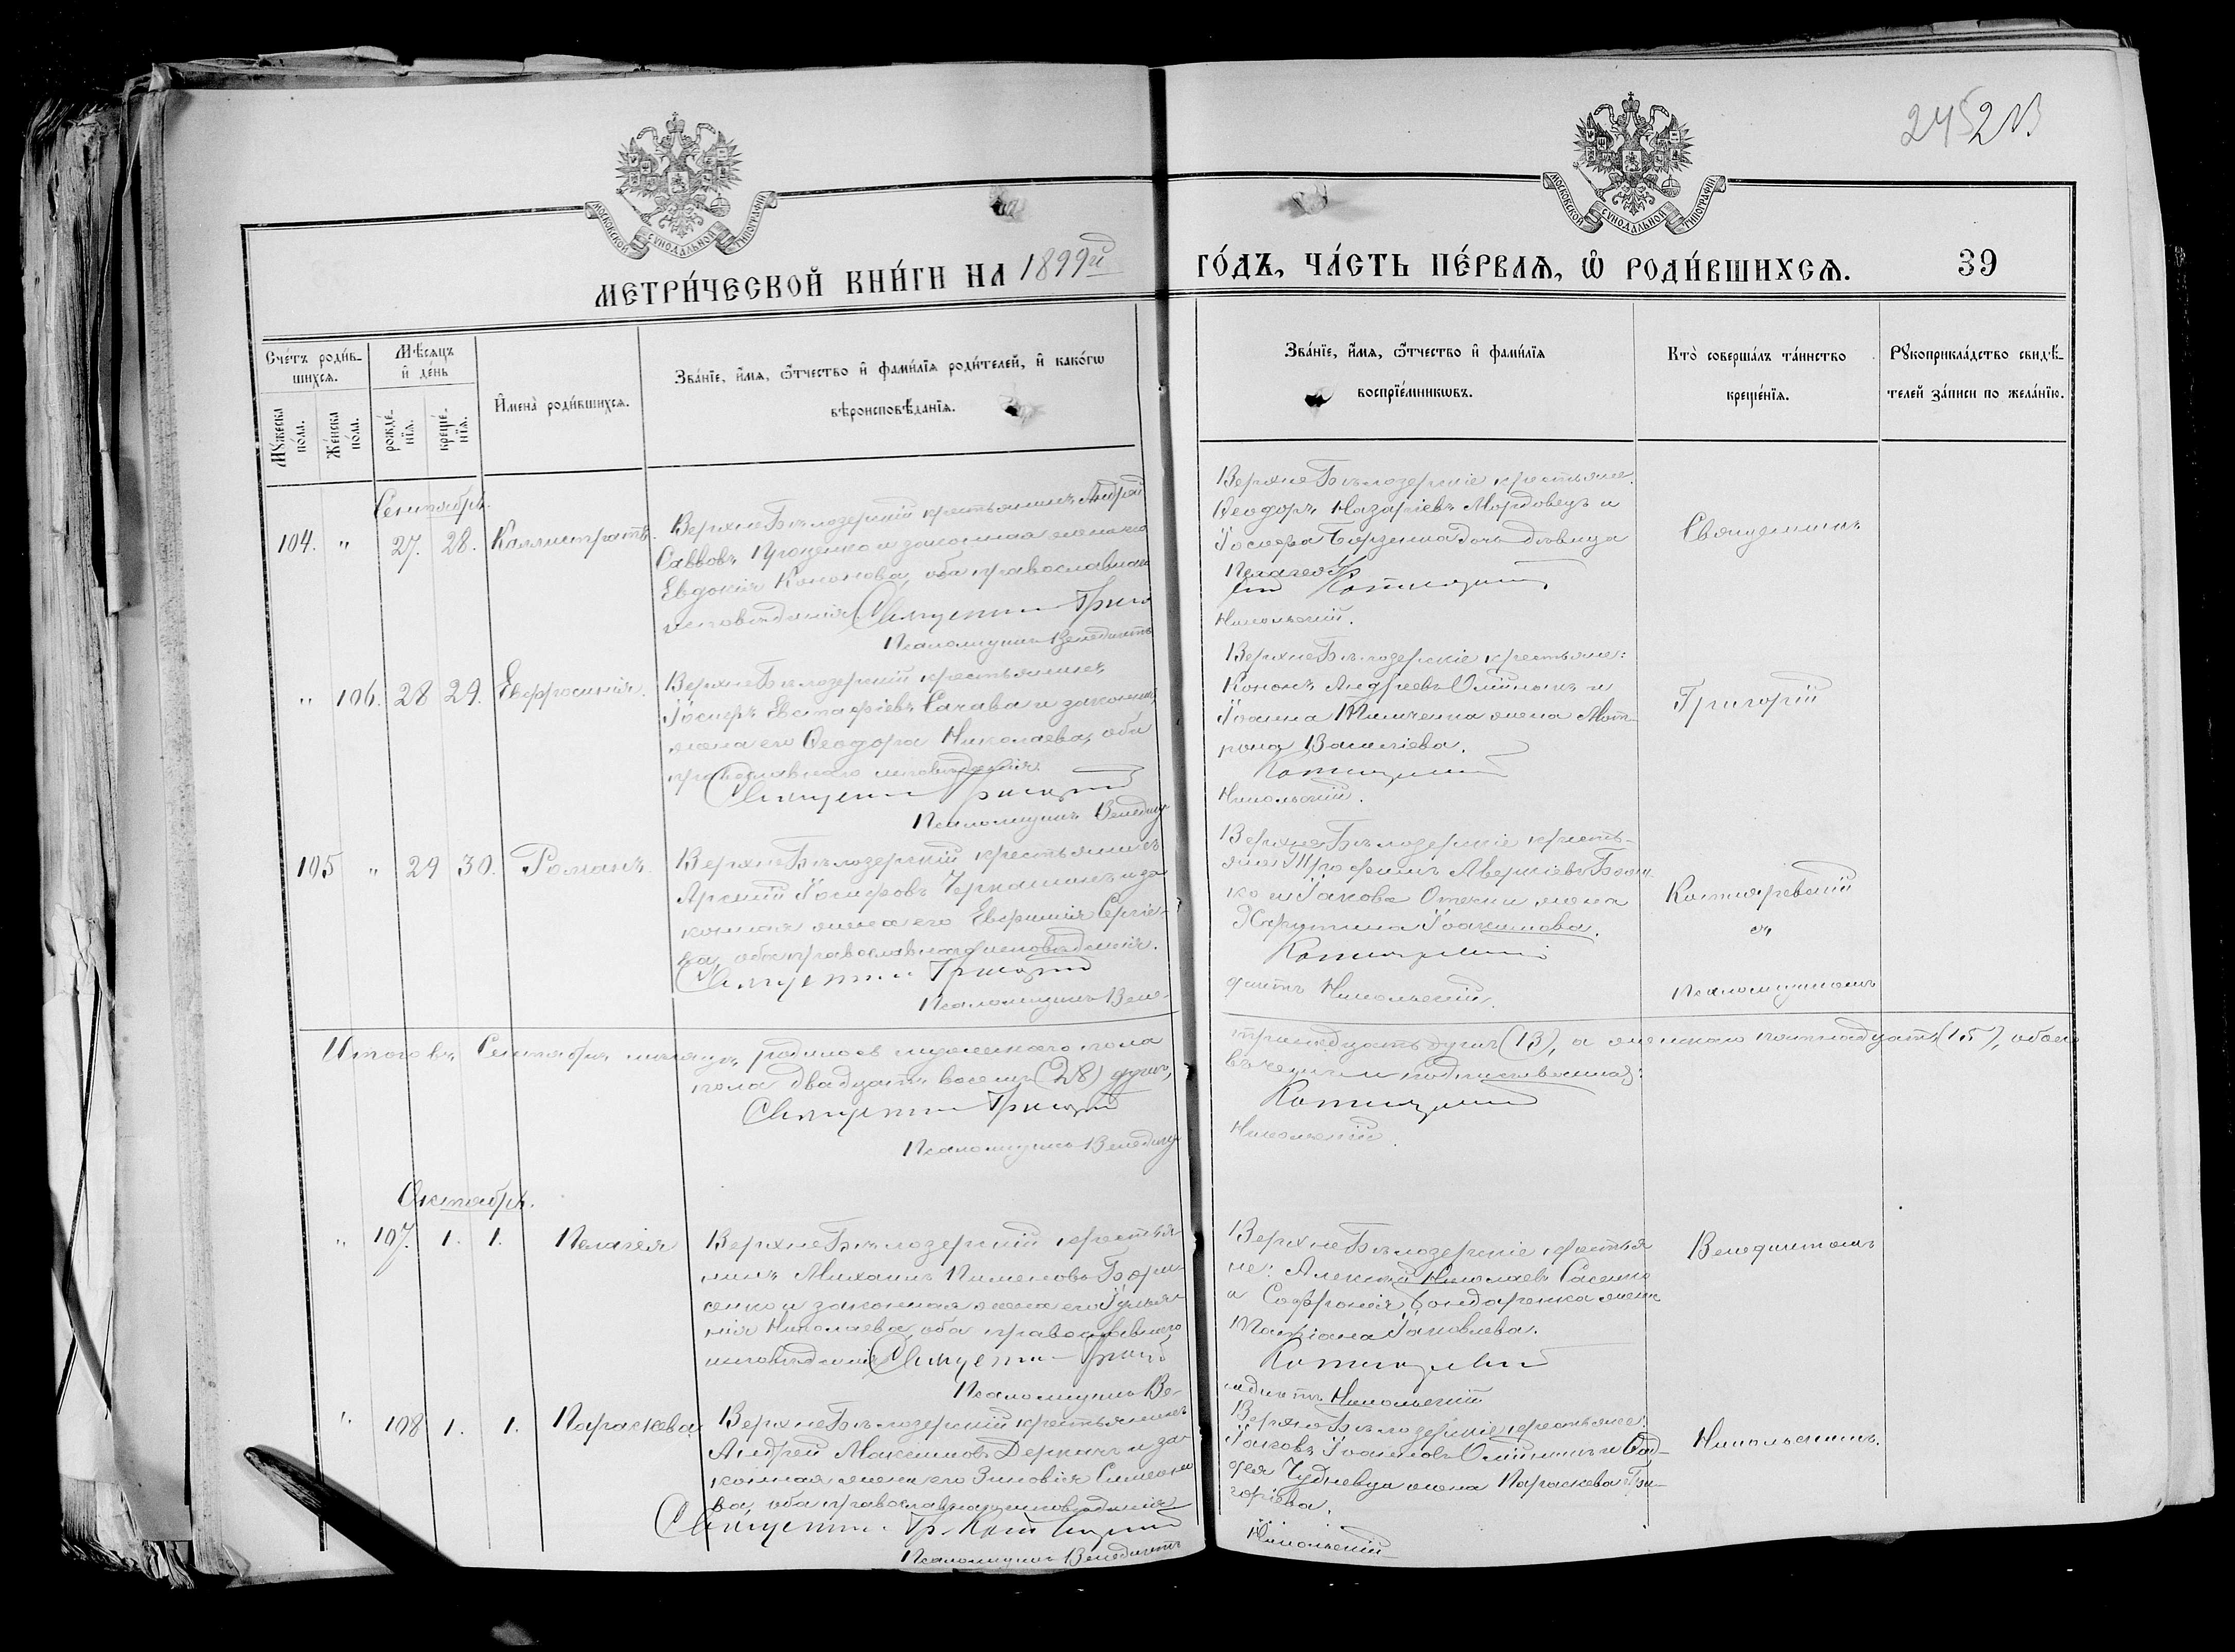 2452В
МОСКОВСКОЙ СѴНОДАЛЬНОЙ ТИПОГРАФІИ
МОСКОВСКОЙ СѴНОДАЛЬНОЙ ТИПОГРАФІИ
МЕТРИ́ЧЕСКОЙ КНИ́ГИ НА 1899й
ГО́ДЪ, ЧА́СТЬ ПЕ́РВАѦ, Ѽ РОДИ́ВШИХСѦ. 39
Сче́тъ роди́в-
шихсѧ.
Мꙋ́жеска по́ла.
Же́нска по́ла.
Мѣ́сѧцъ
и҆ де́нь
рожде́-
нїѧ.
креще́-
нїѧ.
И҆мена̀ роди́вшихсѧ.
Зва́нїе, и҆́мѧ, ѻ҆́тчество и҆ фами́лїѧ роди́телей, и҆ како́гѡ
вѣроисповѣ́данїѧ.
Зва́нїе, и҆́мѧ, ѻ҆́тчество и҆ фами́лїѧ
воспрїе́мникѡвъ.
Кто̀ соверша́лъ та́инство
креще́нїѧ.
Рꙋкоприкла́дство свидѣ́-
телей за́писи по жела́нїю.
Сентябрь.
104. " 27. 28. Каллистратъ.
Верхне Бѣлозерскій крестьянинъ Андрей
Саввовъ Проценко и законная жена его
Евдокія Кононова, оба православнаго
исповѣданія. Священникъ Григо
Псаломщикъ Венедиктъ
Верхне Бѣлозерскіе крестьяне:
Ѳеодоръ Назаріевъ Мордовецъ и
Іосифа дочь дѣвица
Пелагея
Никольскій.
Священникъ
" 106. 28 29. Евфросинія.
Верхне Бѣлозерскій крестьянинъ
Іосифъ Евстафіевъ Сачава и законная
жена его Ѳеодора Николаева, оба
православнаго исповѣданія.
Священникъ Григорій
Псаломщикъ Венедик
Верхне Бѣлозерскіе крестьяне:
Кононъ Андреевъ Олійникъ и
Іоанна жена Мат-
рона Васильева.
Никольскій.
Григорій
105 " 29 30. Романъ.
Верхне Бѣлозерскій крестьянинъ
Арсеній Іосифовъ Черкашинъ и за-
конная жена его Евфимія Сергіе-
ва, оба православнаго исповѣданія.
Священникъ Григорій
Псаломщикъ Вене-
Верхне Бѣлозерскіе кресть-
яне: Трофимъ Аверкіевъ
ко и Іакова жена
Харитина Іоакимова.
диктъ Никольскій.
съ
псаломщикомъ
Итого въ Сентябрѣ мѣсяцѣ родилось мужескаго пола
тринадцать душъ (13), а женскаго пятнадцать (15), обоего
пола двадцать восемь (28) душъ,
въ чемъ и подписываемся:
Священникъ Григорій
Псаломщикъ Венедик
Никольскій.
Октябрь.
" 107. 1. 1. Пелагея
Верхне Бѣлозерскій крестья-
нинъ Михаилъ Пименовъ Бори-
сенко и законная жена его Іулья-
нія Николаева, оба православнаго
исповѣданія. Священникъ Григорій
Псаломщикъ Ве-
Верхне Бѣлозерскіе крестья-
не: Алексѣй Николаевъ
и Софронія Бондаренка жена
Маріана Іаковлева.
недиктъ Никольскій
Венедиктомъ
" 108 1. 1. Параскева
Верхне Бѣлозерскій крестьянинъ
Андрей Максимовъ Деркачъ и за-
конная жена его Зиновія Симеоно
ва, оба православнаго исповѣданія
Священникъ Гр.
Псаломщикъ Венедиктъ
Верхне Бѣлозерскіе крестьяне:
Іаковъ Іоанновъ Олійникъ и Ѳад-
дея жена Параскева Гри-
горіева.
Никольскій
Никольскимъ.